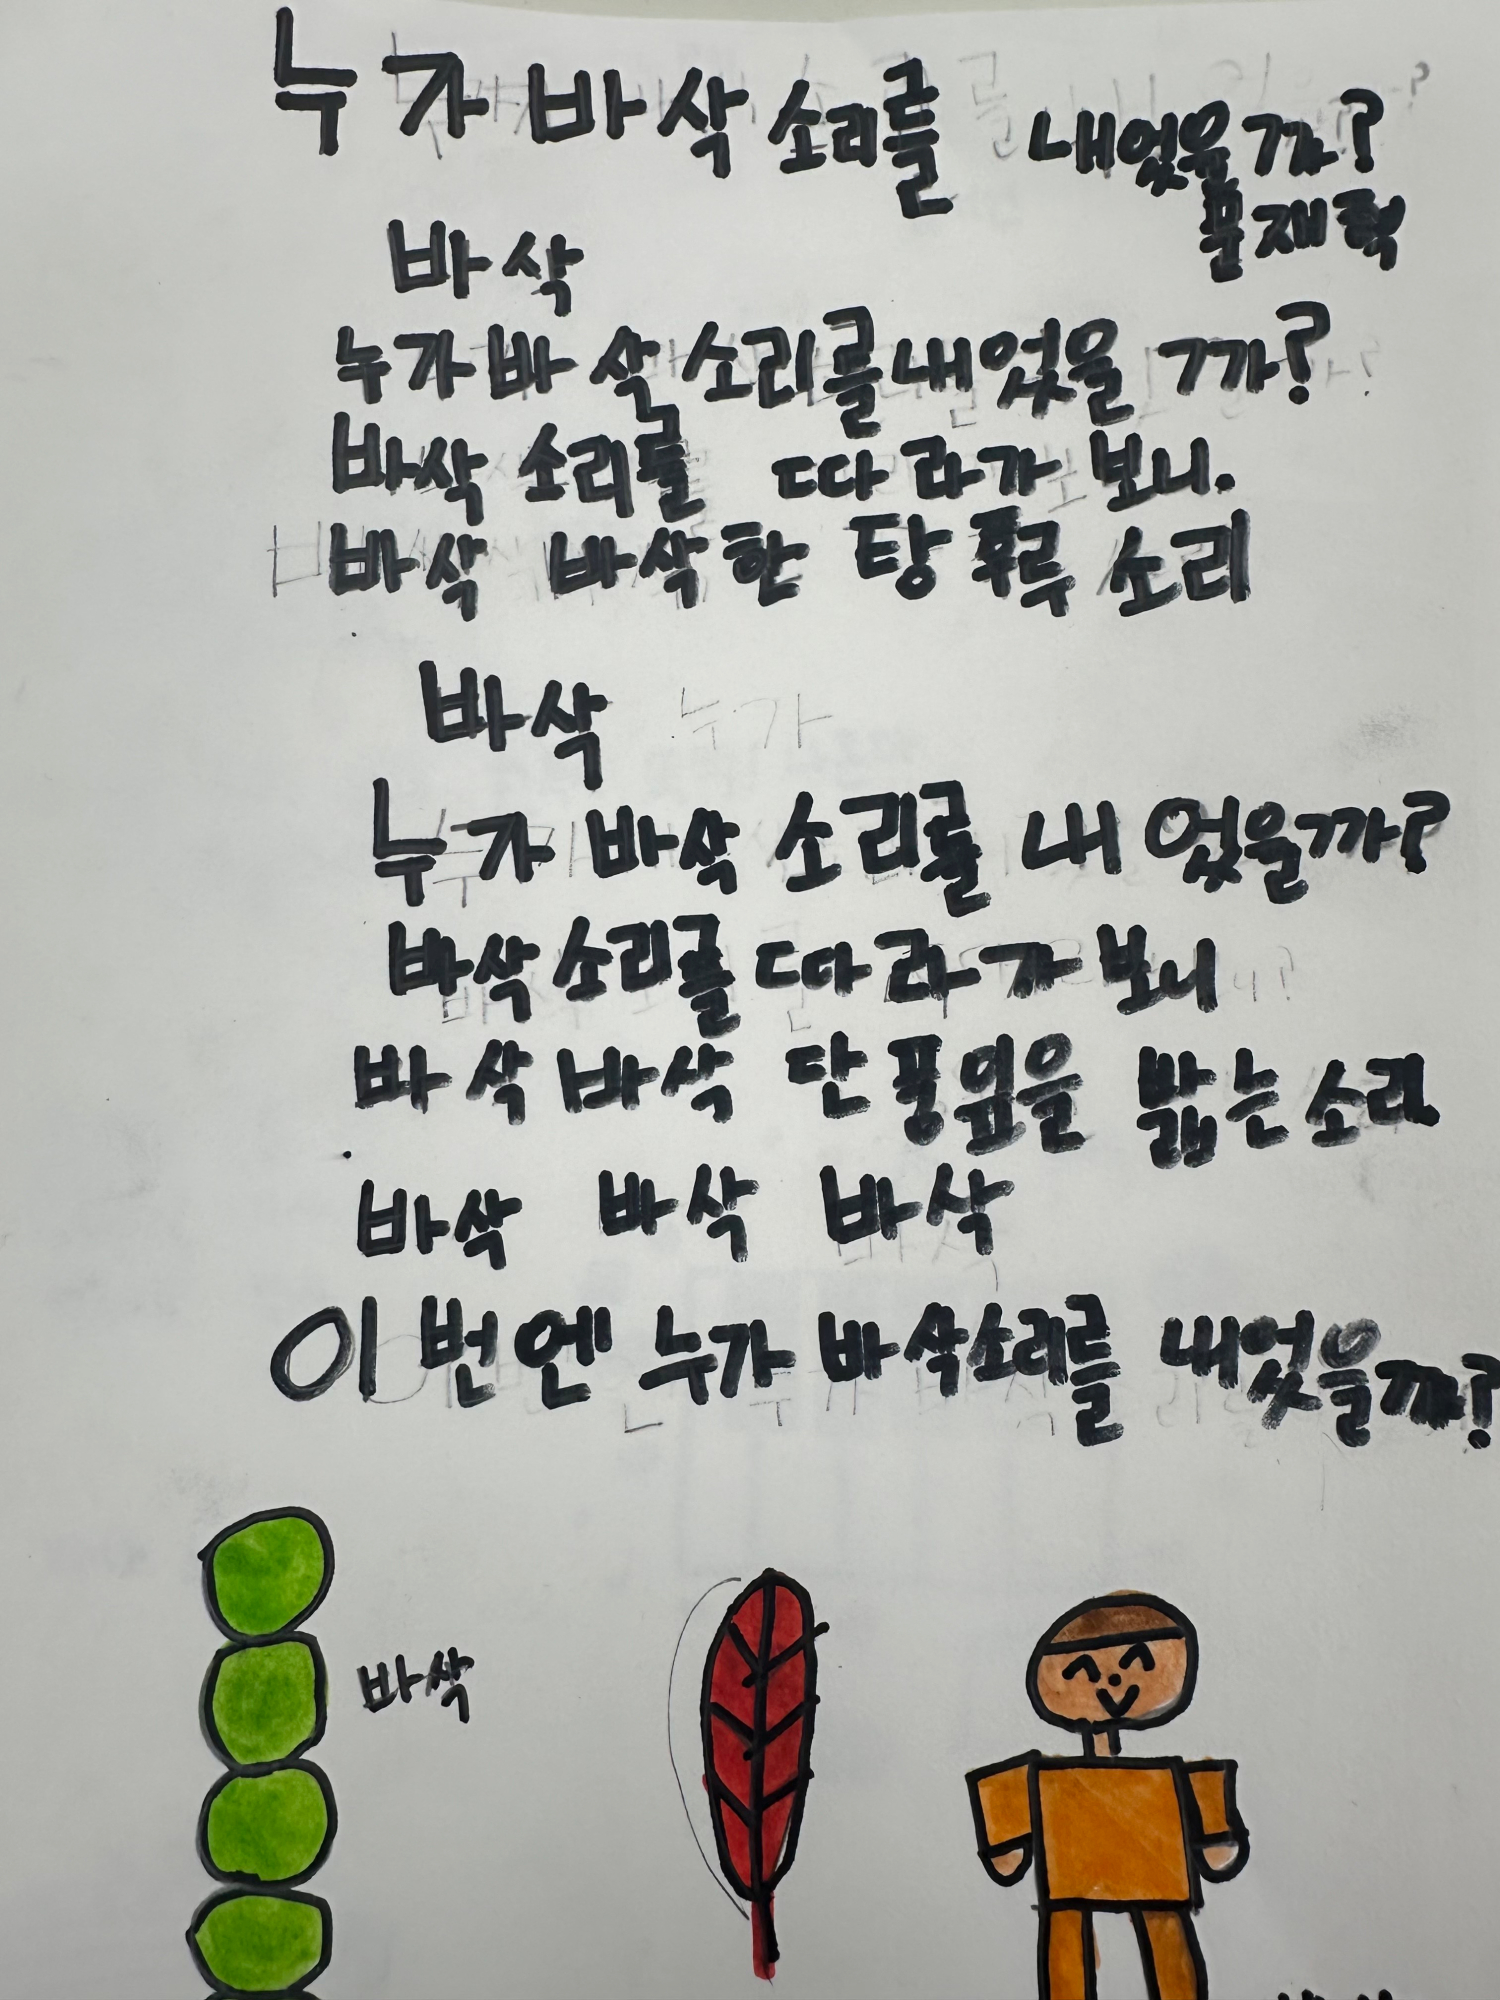 누가 바삭 소리를 내었을까?
문재혁
바삭
누가 바삭 소리를 내었을까?
바삭 소리를 따라가 보니.
바삭 바삭한 탕후루 소리
바삭
누가 바삭 소리를 내었을까?
바삭 소리를 따라가 보니
바삭바삭 단풍잎을 밟는 소리
바삭 바삭 바삭
이번엔 누가 바삭소리를 내었을까?
바삭